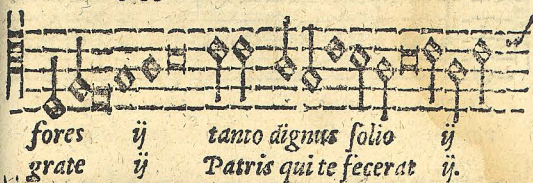 fores ij tanto dignus solio ij
grate ij Patris qui te fecerat ij.